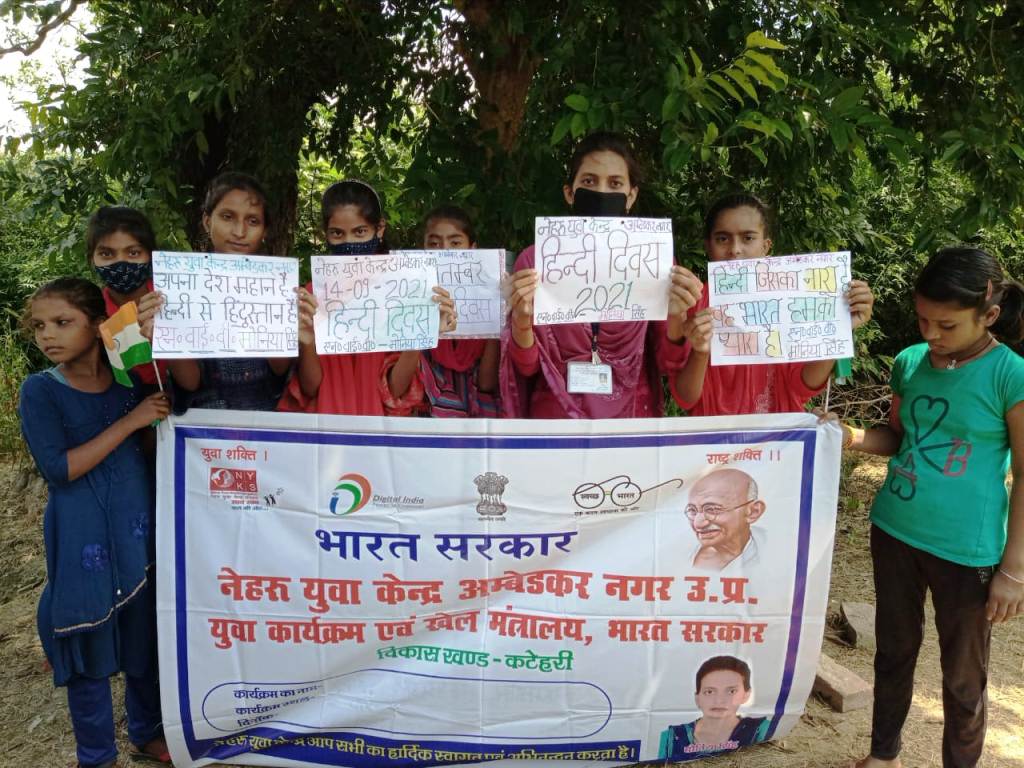 नेहरू युवा केन्द्र अम्बेडकर नगर
अपना देश महान है
हिन्दी से हिंदुस्तान है
एन० वाई० वी० मोनिया सिंह
नेहरू युवा केन्द्र अम्बेडकर नगर
14-09-2021
हिन्दी दिवस
एन० वाई० वी० - मोनिया सिंह
तम्बर
दिवस
नेहरू युवा केन्द्र अम्बेडकर नगर
हिन्दी दिवस
2021
एन० वाई० वी० - मोनिया सिंह
नेहरू युवा केन्द्र अम्बेडकर नगर
हिन्दी जिसका नारा है
वह भारत हमको
प्यारा है।
एन० वाई० वी०
मोनिया सिंह
युवा शक्ति ।
राष्ट्र शक्ति ।।
NY
KS
Digital India
स्वच्छ भारत
एक कदम स्वच्छता की ओर
भारत सरकार
नेहरू युवा केन्द्र अम्बेडकर नगर उ.प्र.
युवा कार्यक्रम एवं खेल मंत्रालय, भारत सरकार
विकास खण्ड - कटेहरी
कार्यक्रम का नाम-
कार्यक्रम स्थल-
दिनाँक-
नेहरू युवा केन्द्र आप सभी का हार्दिक स्वागत एवं अभिनन्दन करता है।
B